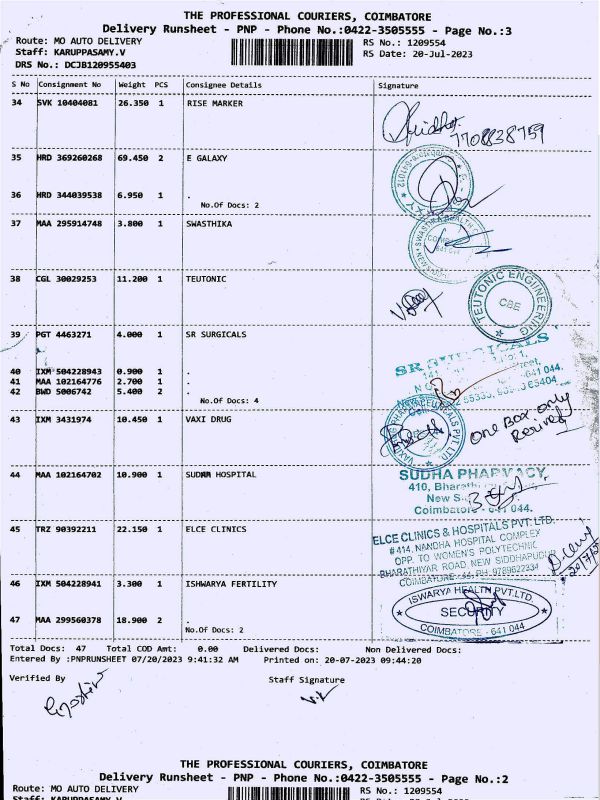 THE PROFESSIONAL COURIERS, COIMBATORE
Delivery Runsheet - PNP - Phone No.:0422-3505555 - Page No.:3
Route: MO AUTO DELIVERY RS No.: 1209554
Staff: KARUPPASAMY.V RS Date: 20-Jul-2023
DRS No.: DCJB120955403
S No Consignment No Weight PCS Consignee Details Signature
34 SVK 10404081 26.350 1 RISE MARKER
7708838759
35 HRD 369260268 69.450 2 E GALAXY
36 HRD 344039538 6.950 1 .
No.Of Docs: 2
37 MAA 295914748 3.800 1 SWASTHIKA
38 CGL 30029253 11.200 1 TEUTONIC
TEUTONIC ENGINEERING
CBE
39 PGT 4463271 4.000 1 SR SURGICALS
SR SURGICALS
40 IXM 504228943 0.900 1 .
41 MAA 102164776 2.700 1 .
42 BWD 5006742 5.400 2 .
No.Of Docs: 4
43 IXM 3431974 10.450 1 VAXI DRUG
one Box only
Recived
44 MAA 102164702 10.900 1 SUDHA HOSPITAL
SUDHA PHARMACY
410, Bharathi
Coimbatore - 641 044.
45 TRZ 90392211 22.150 1 ELCE CLINICS
ELCE CLINICS & HOSPITALS PVT. LTD.
#414, NANDHA HOSPITAL COMPLEX
OPP. TO WOMEN'S POLYTECHNIC
BHARATHIYAR ROAD NEW SIDDHAPUDUR
46 IXM 504228941 3.300 1 ISHWARYA FERTILITY
ISWARYA HEALTH PVT.LTD.
SECURITY
COIMBATORE - 641 044
47 MAA 299560378 18.900 2 .
No.Of Docs: 2
Total Docs: 47 Total COD Amt: 0.00 Delivered Docs: Non Delivered Docs:
Entered By :PNPRUNSHEET 07/20/2023 9:41:32 AM Printed on: 20-07-2023 09:44:20
Verified By Staff Signature
THE PROFESSIONAL COURIERS, COIMBATORE
Delivery Runsheet - PNP - Phone No.:0422-3505555 - Page No.:2
Route: MO AUTO DELIVERY RS No.: 1209554
Staff: KARUPPASAMY.V